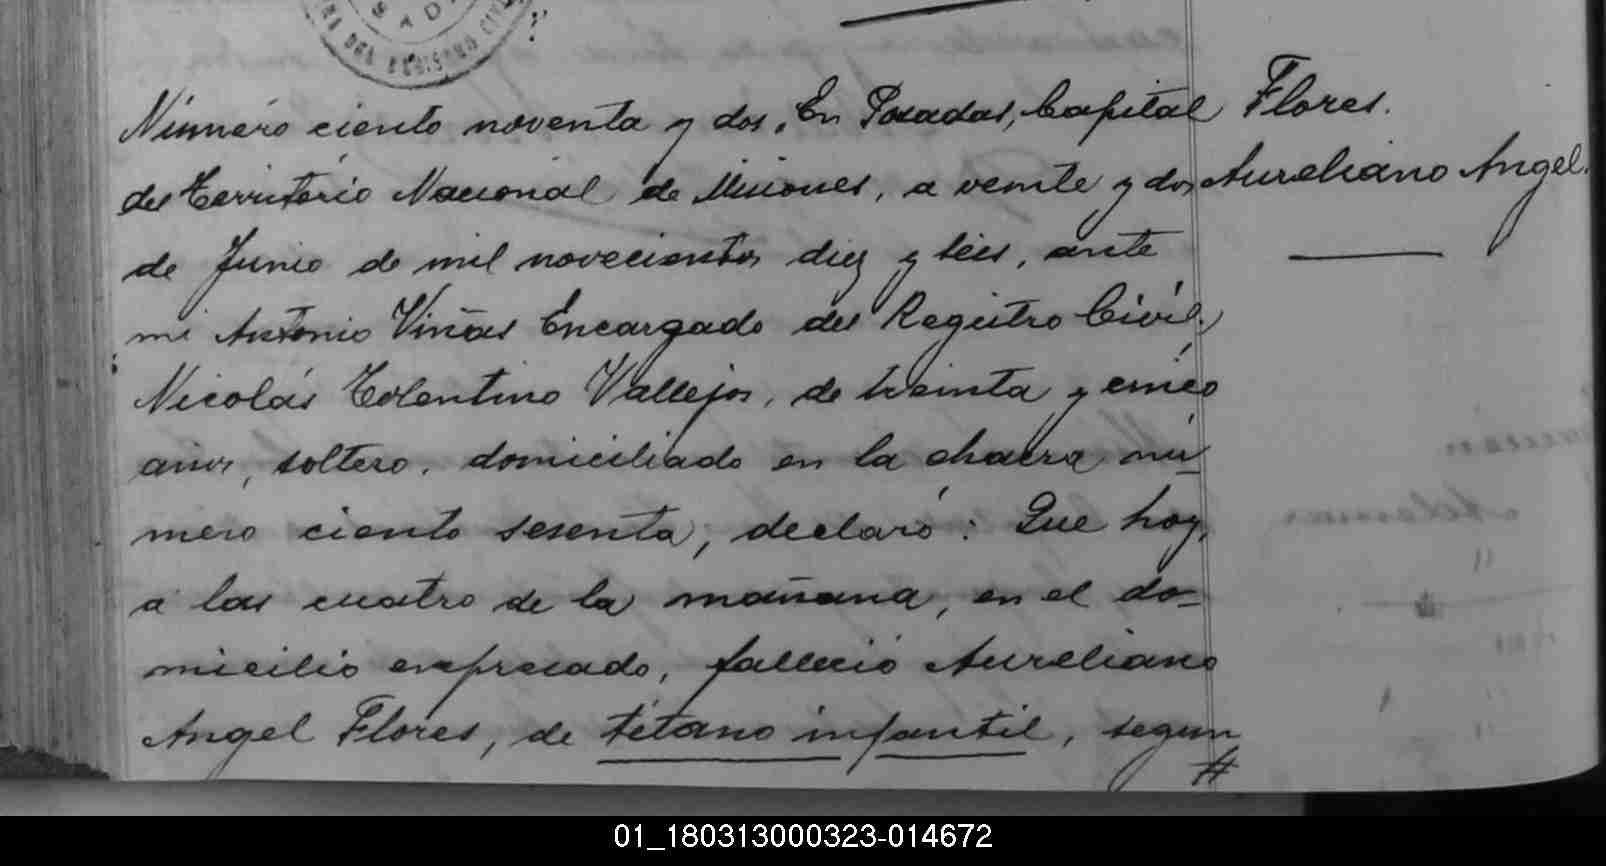 Número ciento noventa y dos, En Posadas, Capital
del Territorio Nacional de Misiones, a veinte y dos
de Junio de mil novecientos diez y seis, ante
mi Antonio Viñas Encargado del Registro Civil,
Nicolás Tolentino Vallejos, de treinta y cinco
años, soltero, domiciliado en la chacra nú-
mero ciento sesenta, declaró: Que hoy,
a las cuatro de la mañana, en el do-
micilio expresado, falleció Aureliano
Angel Flores, de tétano infantil, segun
Flores.
Aureliano Angel.
01_180313000323-014672